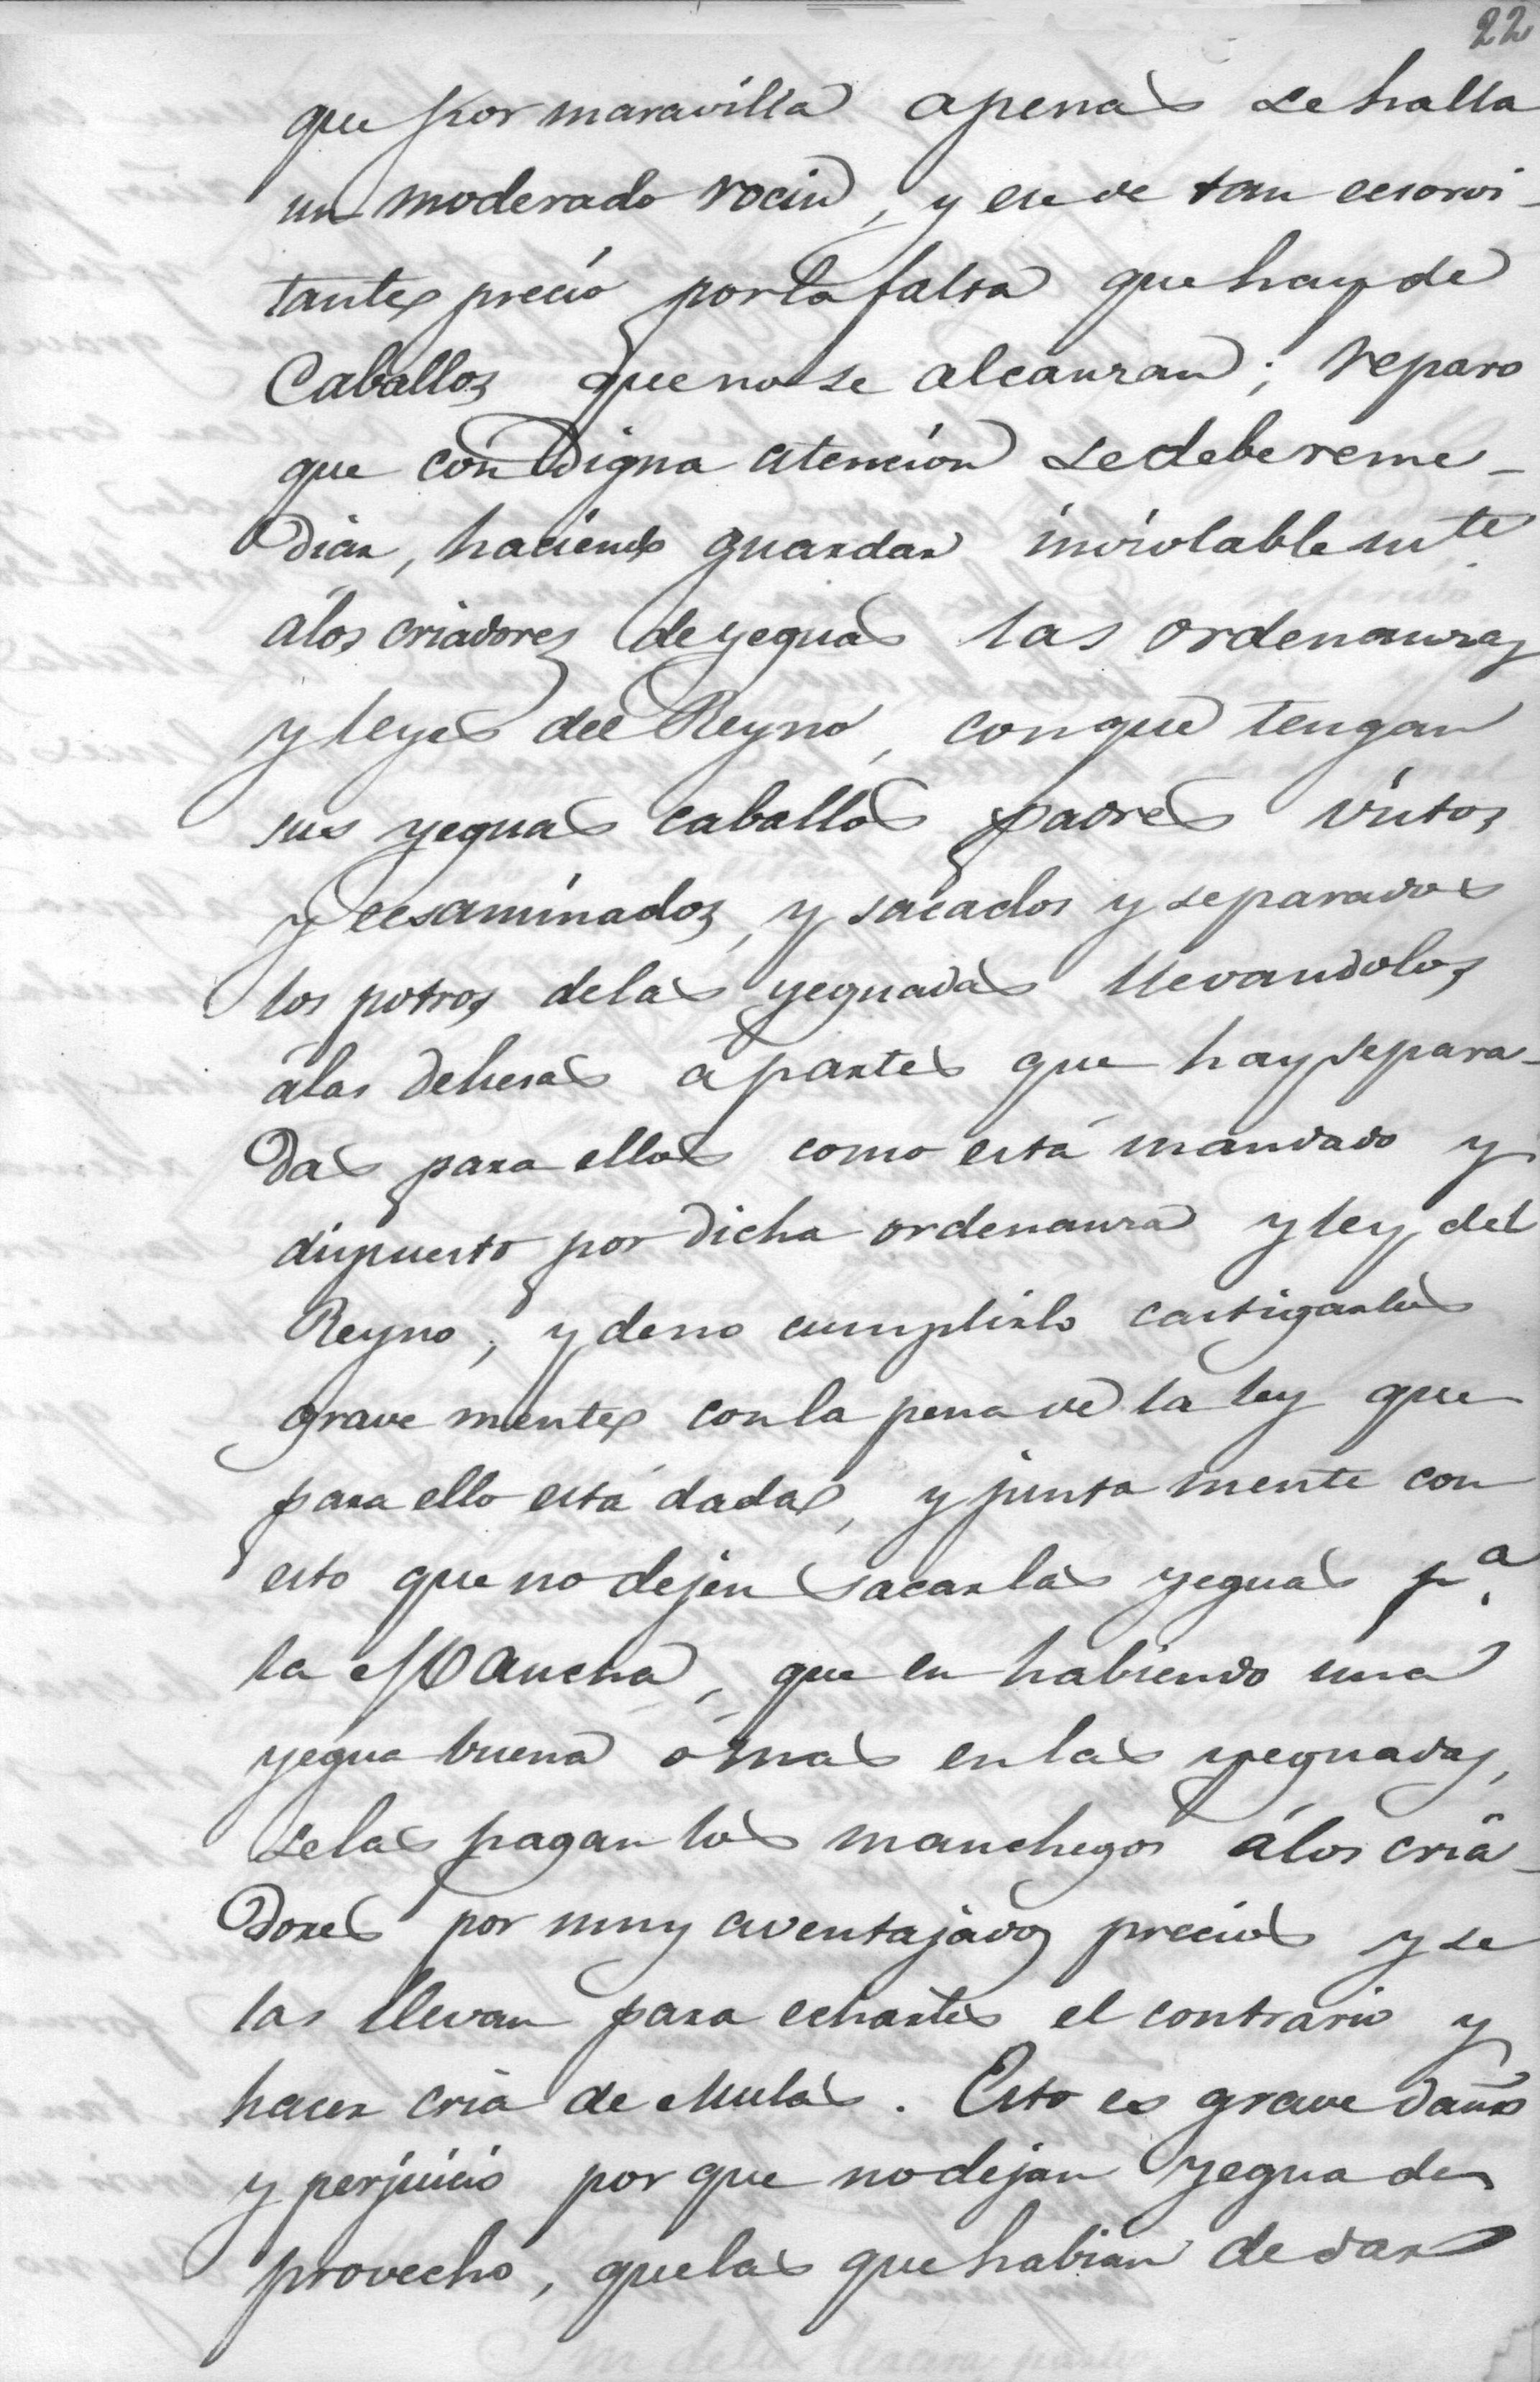 22
que por maravilla apenas se halla
un moderado rocin, y ese de tan ecsorvi-
tante precio por la falta que hay de
Caballos que no se alcanzan; reparo
que con Digna atencion se debe reme-
diar, haciendo guardar inviolablemte.
álos criadores de yeguas las ordenanzas
y leyes del Reyno, con que tengan
sus yeguas caballos padres vistos
y ecsaminados, y sacados y separados
los potros delas yeguadas llevandolos
álas dehesas ápartes que hay separa-
das para ellos como está mandado y
dispuesto por dicha ordenanza y ley del
Reyno; y de no cumplirlo castigarlos
grave mente con la pena de la ley que
para ello está dada, y junta mente con
esto que no dejen sacar las yeguas pa.
la Mancha, que en habiendo una
yegua buena ó mas en las yeguadas,
se las pagan los manchegos álos cria-
dores por muy aventajados precios y se
las llevan para echarles el contrario y
hacer cria de Mulas. Esto es grave daño
y perjuicio por que no dejan yegua de
provecho, que las que habian de dar